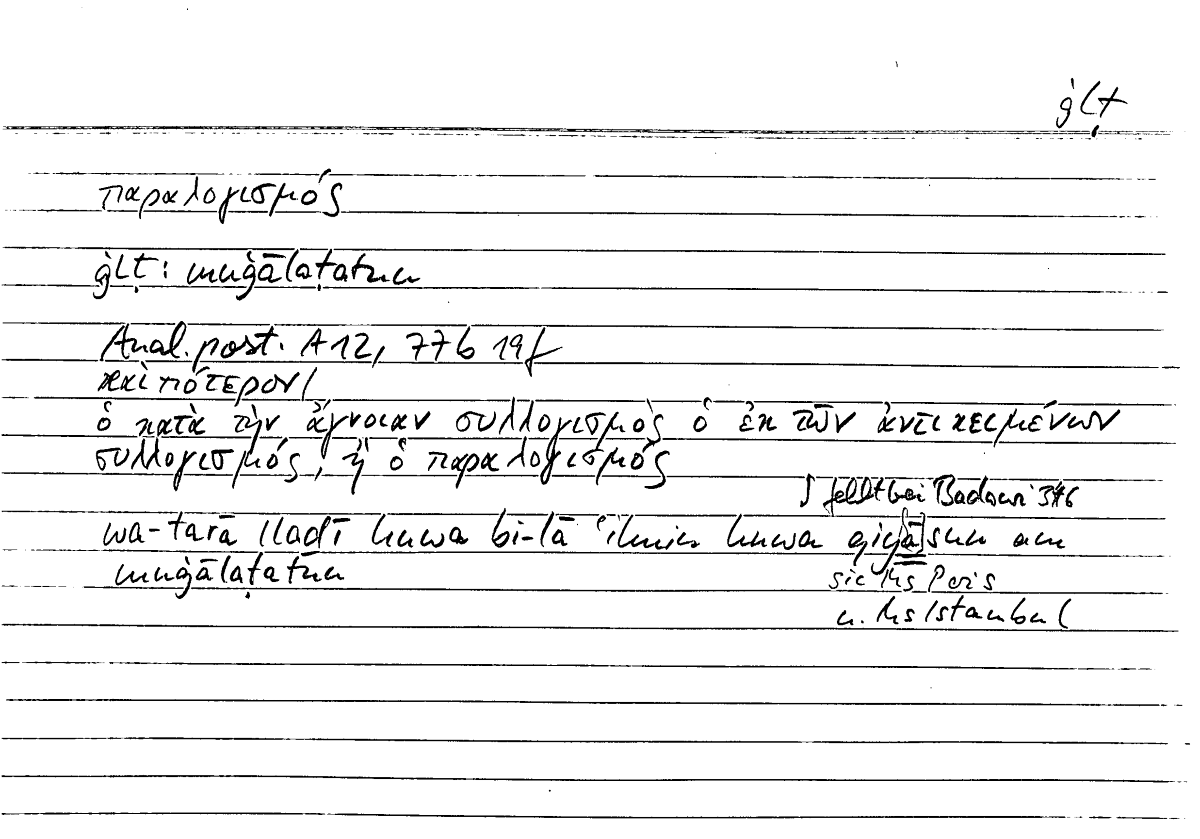 ġlṭ
παραλογισμός
ġlṭ: muġālaṭatun
Anal. post. A 12, 77b 19f
καὶ πότερον/
ὁ κατὰ τὴν ἄγνοιαν συλλογισμὸς ὁ ἐκ τῶν ἀντικειμένων
συλλογισμός, ἢ ὁ παραλογισμός
fehlt bei Badawi 346
wa-tarā lladī huwa bi-lā ʿilmin huwa qiyāsun am
muġālaṭatun
sic Ms Paris
u. Ms Istanbul